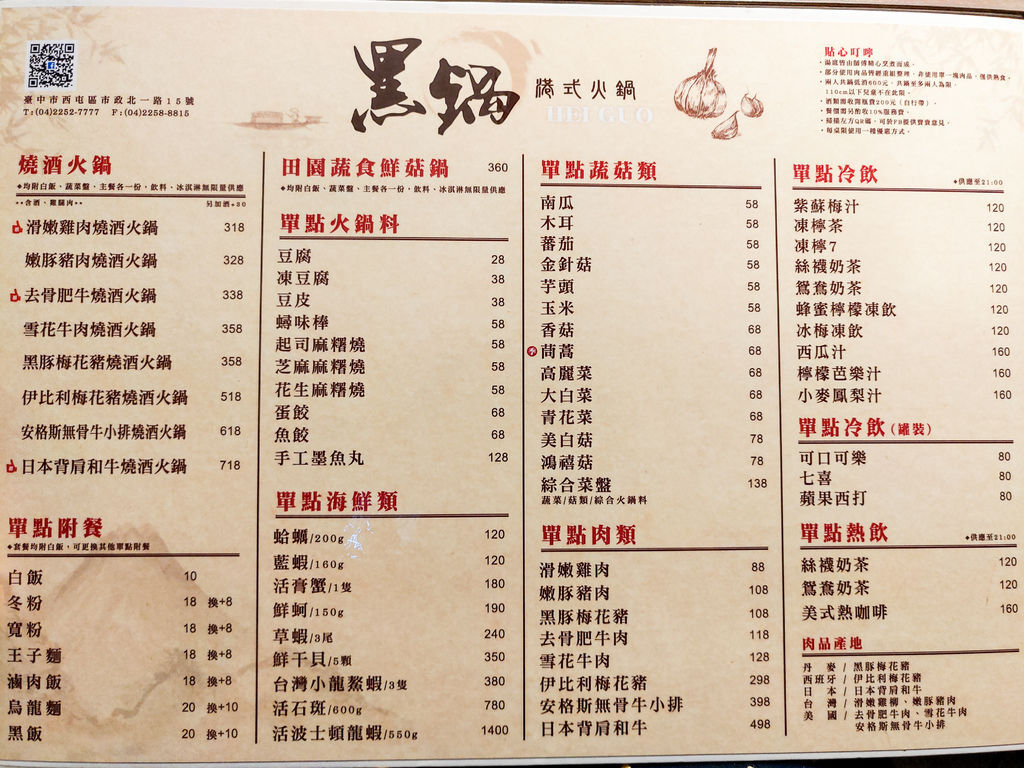 臺中市西屯區市政北一路15號
T:(04)2252-7777 F:(04)2258-8815
黑鍋 港式火鍋
HEI GUO
貼心叮嚀
・湯底皆由師傅精心烹煮而成。
・部分使用肉品皆經重組整理,非使用單一塊肉品,僅供熟食。
・兩人共鍋低消600元,共鍋至多兩人為限。
110cm以下兒童不在此限。
・酒類酌收開瓶費200元(自行帶)。
・餐價需另酌收10%服務費。
・掃描左方QR碼,可於FB提供寶貴意見。
・每桌限使用一種優惠方式。
燒酒火鍋
◆均附白飯、蔬菜盤、主餐各一份,飲料、冰淇淋無限量供應
**含酒、雞腿肉** 另加酒+30
滑嫩雞肉燒酒火鍋 318
嫩豚豬肉燒酒火鍋 328
去骨肥牛燒酒火鍋 338
雪花牛肉燒酒火鍋 358
黑豚梅花豬燒酒火鍋 358
伊比利梅花豬燒酒火鍋 518
安格斯無骨牛小排燒酒火鍋 618
日本背肩和牛燒酒火鍋 718
單點附餐
◆套餐均附白飯,可更換其他單點附餐
白飯 10
冬粉 18 換+8
寬粉 18 換+8
王子麵 18 換+8
滷肉飯 18 換+8
烏龍麵 20 換+10
黑飯 20 換+10
田園蔬食鮮菇鍋 360
◆均附白飯、蔬菜盤、主餐各一份,飲料、冰淇淋無限量供應
單點火鍋料
豆腐 28
凍豆腐 38
豆皮 38
蟳味棒 58
起司麻糬燒 58
芝麻麻糬燒 58
花生麻糬燒 58
蛋餃 68
魚餃 68
手工墨魚丸 128
單點海鮮類
蛤蠣/200g 120
藍蝦/160g 120
活膏蟹/1隻 180
鮮蚵/150g 190
草蝦/3尾 240
鮮干貝/5顆 350
台灣小龍鰲蝦/3隻 380
活石斑/600g 780
活波士頓龍蝦/550g 1400
單點蔬菇類
南瓜 58
木耳 58
蕃茄 58
金針菇 58
芋頭 58
玉米 58
香菇 68
茼蒿 68
高麗菜 68
大白菜 68
青花菜 68
美白菇 78
鴻禧菇 78
綜合菜盤 138
蔬菜/菇類/綜合火鍋料
單點肉類
滑嫩雞肉 88
嫩豚豬肉 108
黑豚梅花豬 108
去骨肥牛肉 118
雪花牛肉 128
伊比利梅花豬 298
安格斯無骨牛小排 398
日本背肩和牛 498
單點冷飲 ◆供應至21:00
紫蘇梅汁 120
凍檸茶 120
凍檸7 120
絲襪奶茶 120
鴛鴦奶茶 120
蜂蜜檸檬凍飲 120
冰梅凍飲 120
西瓜汁 160
檸檬芭樂汁 160
小麥鳳梨汁 160
單點冷飲(罐裝)
可口可樂 80
七喜 80
蘋果西打 80
單點熱飲 ◆供應至21:00
絲襪奶茶 120
鴛鴦奶茶 120
美式熱咖啡 160
肉品產地
丹麥/黑豚梅花豬
西班牙/伊比利梅花豬
日本/日本背肩和牛
台灣/滑嫩雞柳、嫩豚豬肉
美國/去骨肥牛肉、雪花牛肉
安格斯無骨牛小排